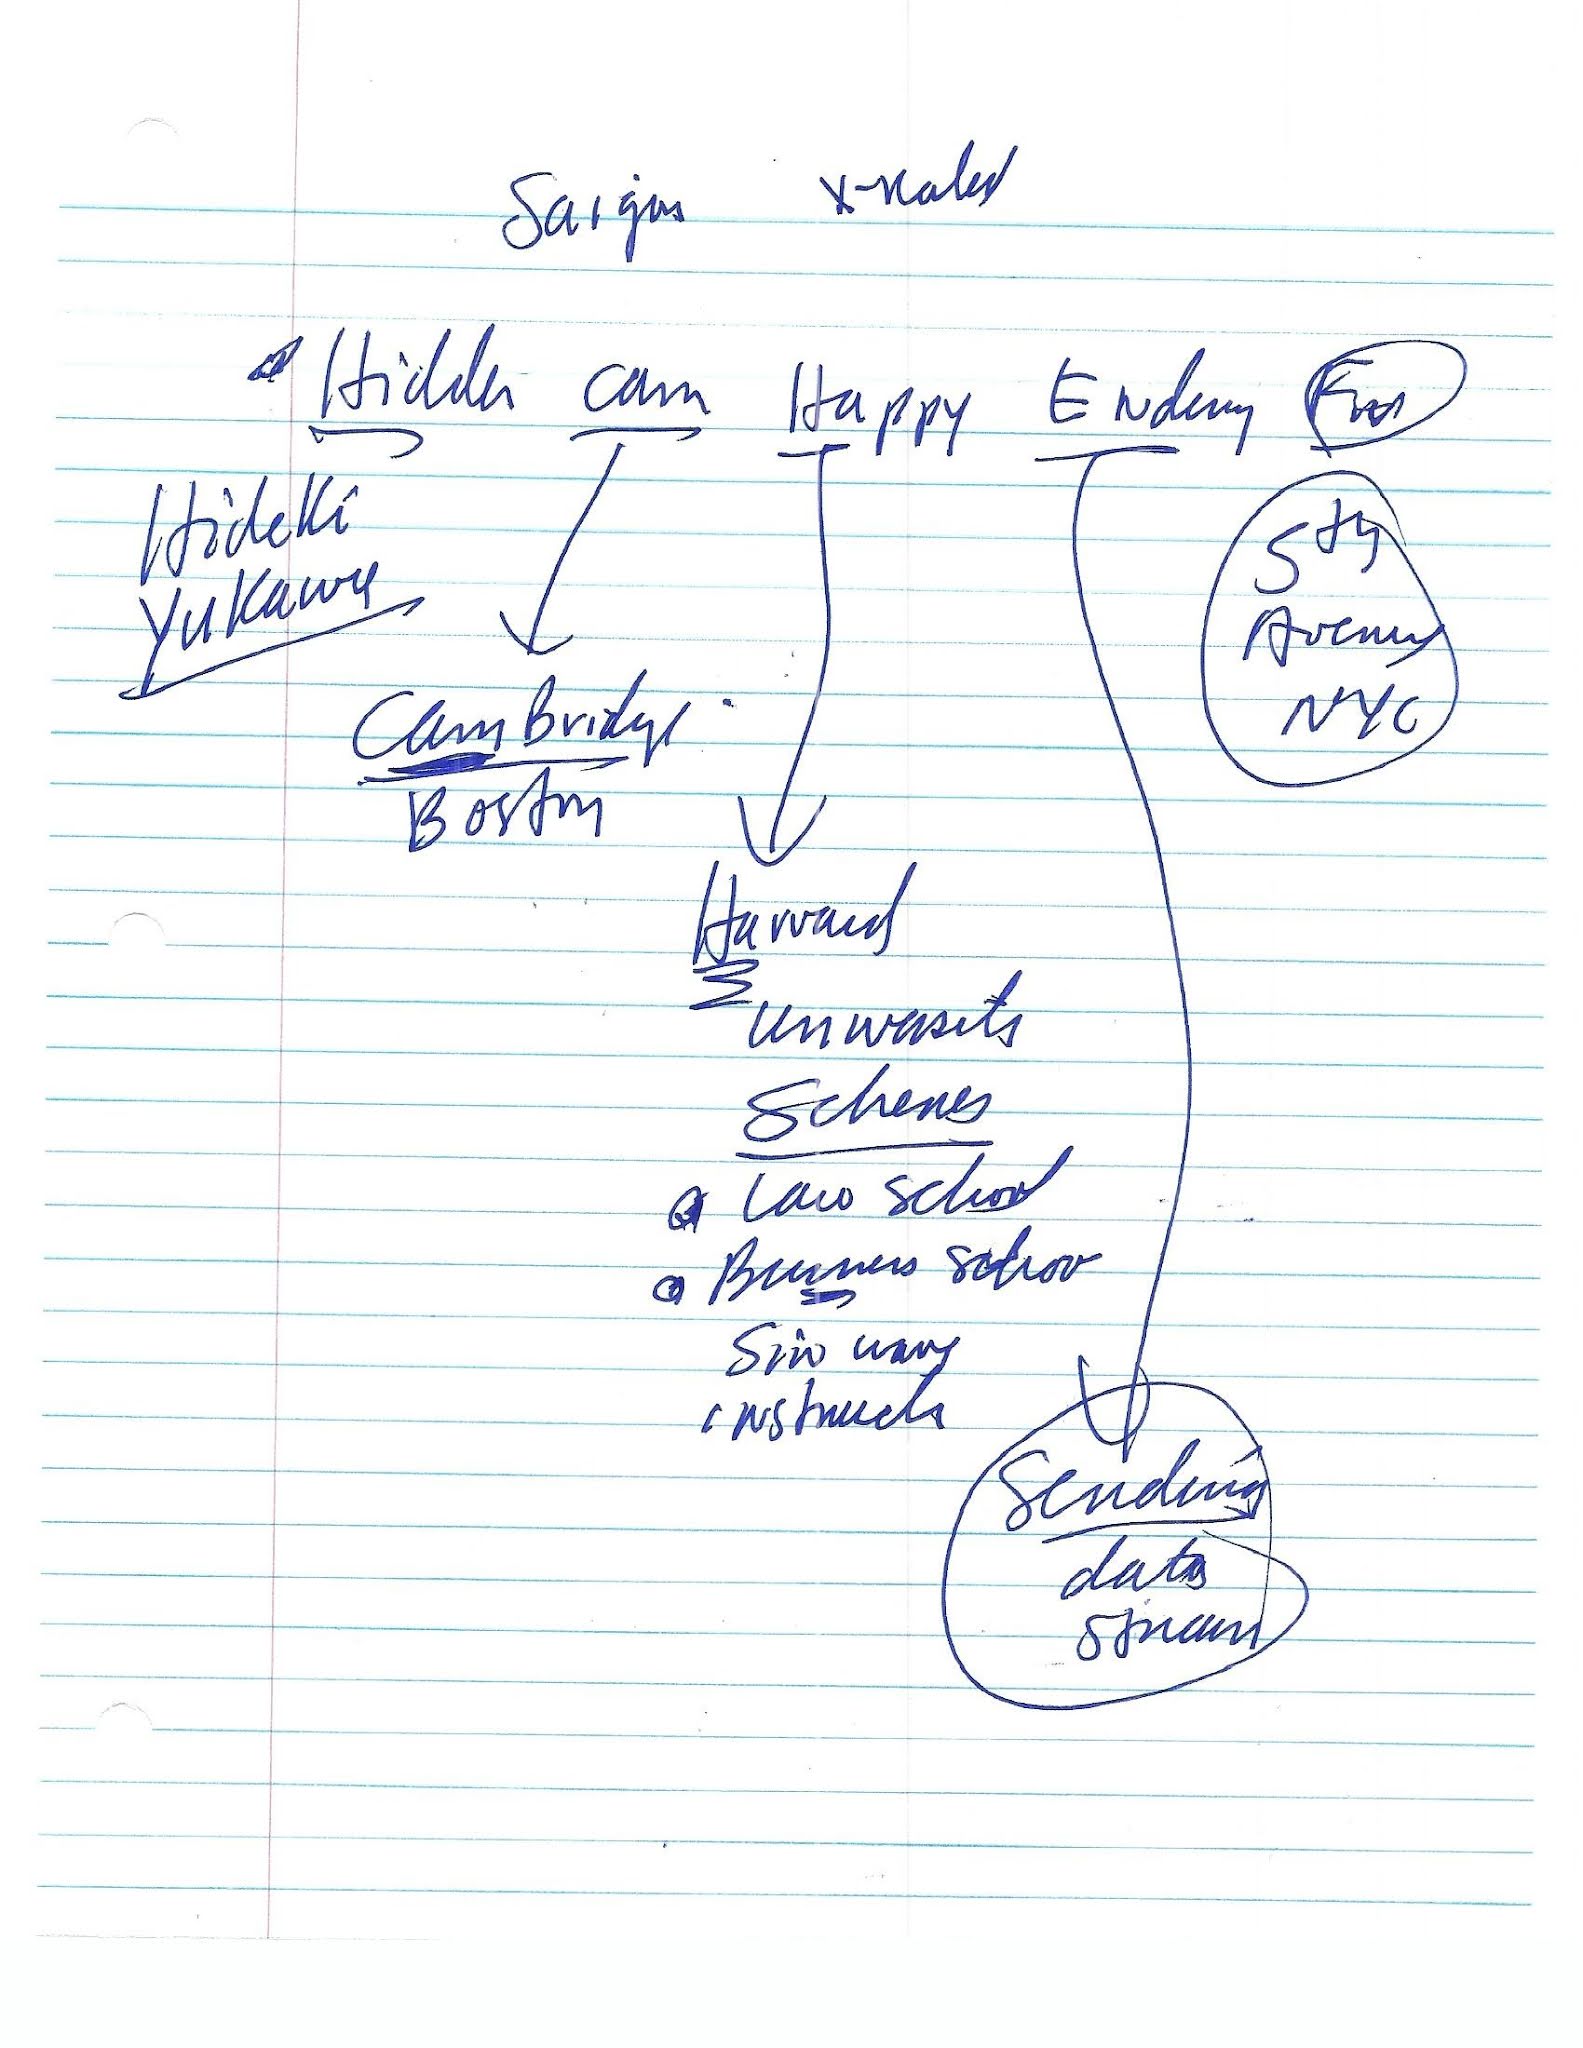 Saigon x-rated
Hidden cam Happy Ending
Hideki
Yukawa
5th
Avenue
NYC
CamBridge
Boston
Harvard
University
Schemes
Law School
Business School
Sin wave
instruch
Sending
data
stream